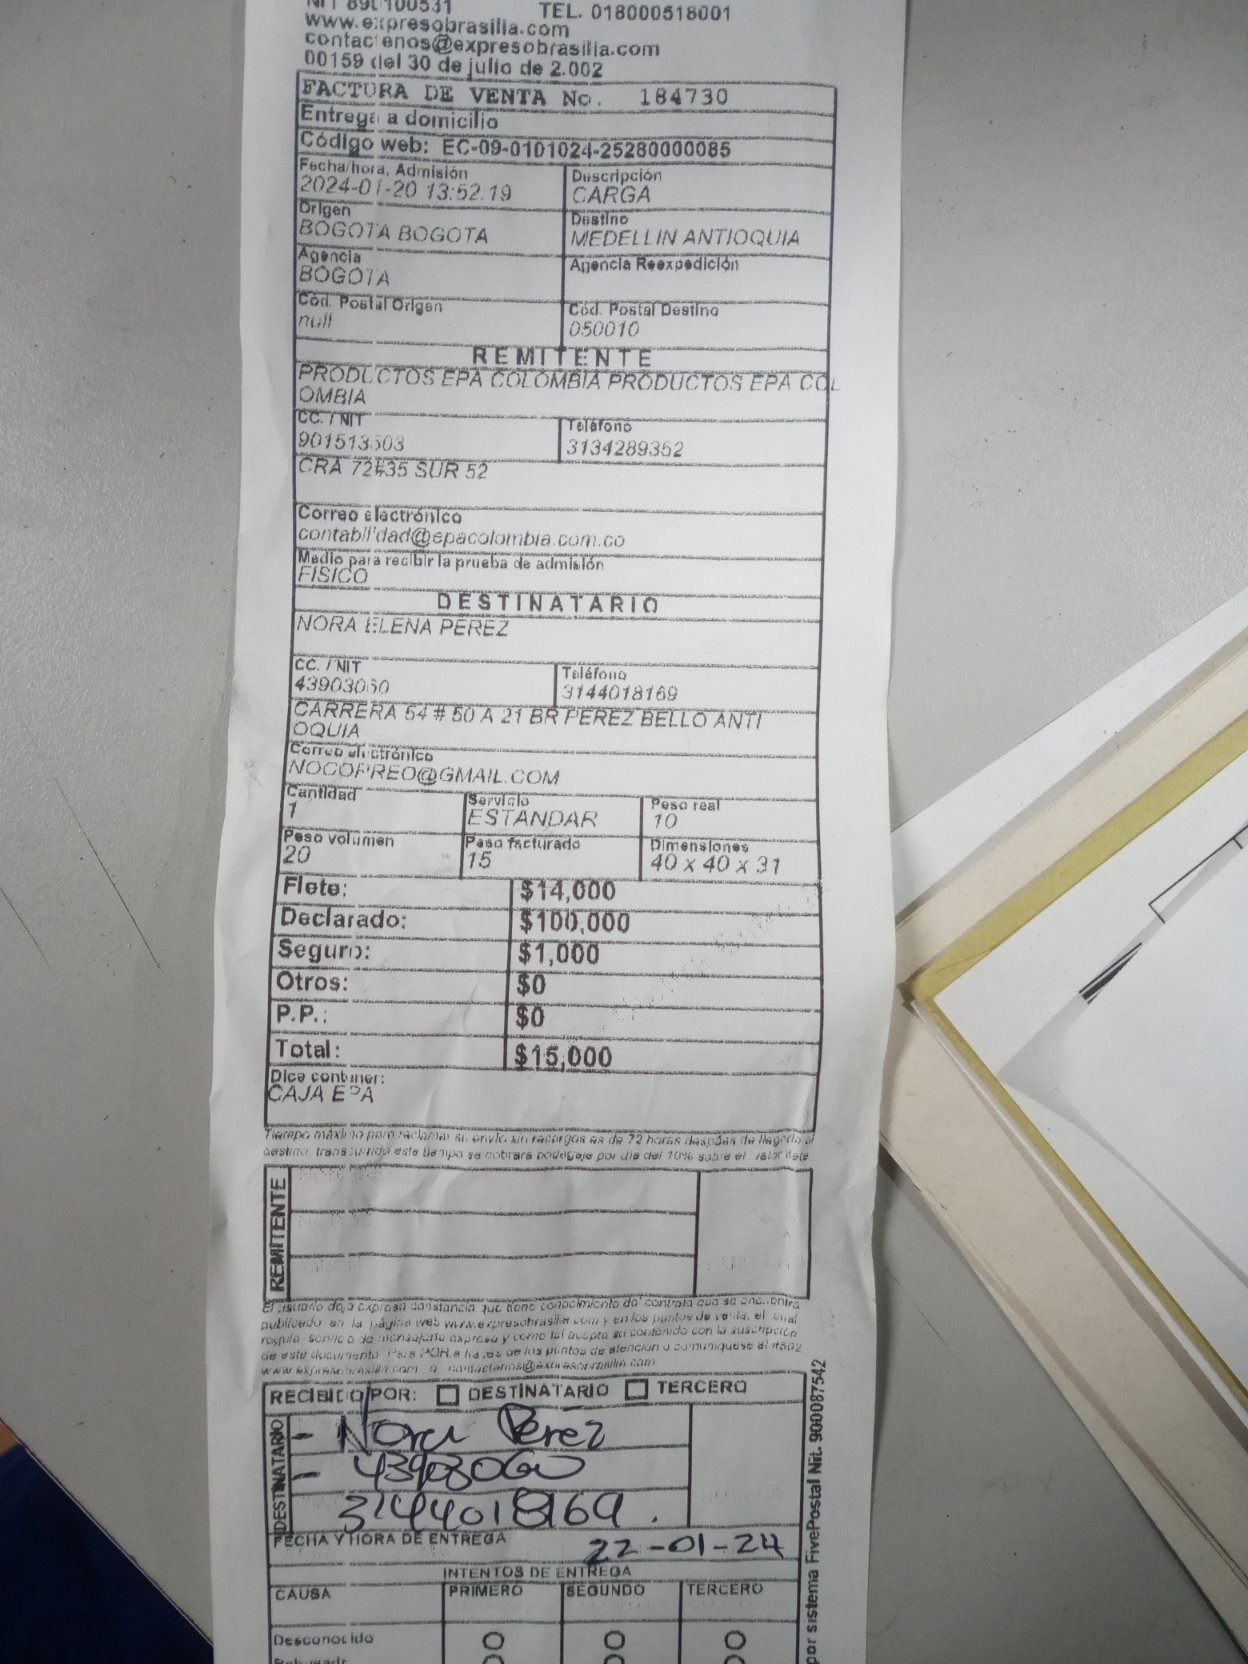 NIT 890100531 TEL. 018000518001
www.expresobrasilia.com
contactenos@expresobrasilia.com
00159 del 30 de julio de 2.002
FACTURA DE VENTA No. 184730
Entrega a domicilio
Código web: EC-09-0101024-25280000085
Fecha/hora, Admisión Descripción
2024-01-20 13:52:19 CARGA
Origen Destino
BOGOTA BOGOTA MEDELLIN ANTIOQUIA
Agencia Agencia Reexpedición
BOGOTA
Cód. Postal Origen Cód. Postal Destino
null 050010
REMITENTE
PRODUCTOS EPA COLOMBIA PRODUCTOS EPA COL
OMBIA
CC. / NIT Teléfono
901513503 3134289352
CRA 72#35 SUR 52
Correo electrónico
contabilidad@epacolombia.com.co
Medio para recibir la prueba de admisión
FISICO
DESTINATARIO
NORA ELENA PEREZ
CC. / NIT Teléfono
43903060 3144018169
CARRERA 54 # 50 A 21 BR PEREZ BELLO ANTI
OQUIA
Correo electrónico
NOCOPREO@GMAIL.COM
Cantidad Servicio Peso real
1 ESTANDAR 10
Peso volumen Peso facturado Dimensiones
20 15 40 x 40 x 31
Flete: $14,000
Declarado: $100,000
Seguro: $1,000
Otros: $0
P.P.: $0
Total: $15,000
Dice contener:
CAJA EPA
Tiempo máximo para reclamar su envío sin recargos es de 72 horas después de llegado al
destino, transcurrido este tiempo se cobrara bodegaje por día del 10% sobre el valor flete
REMITENTE
El usuario deja expresa constancia que tiene conocimiento del contrato que se encuentra
publicado en la página web www.expresobrasilia.com y en los puntos de venta, el cual
regula servicio de mensajería expresa y como tal acepta su contenido con la suscripción
de este documento. Para PQR a través de los puntos de atención o comuníquese al #502
www.expresobrasilia.com o contactenos@expresobrasilia.com
RECIBIDO POR: DESTINATARIO TERCERO
DESTINATARIO
- Nora Pérez
- 43903060
3144018169.
FECHA Y HORA DE ENTREGA 22-01-24
INTENTOS DE ENTREGA
CAUSA PRIMERO SEGUNDO TERCERO
Desconocido
por sistema FivePostal Nit. 900087542